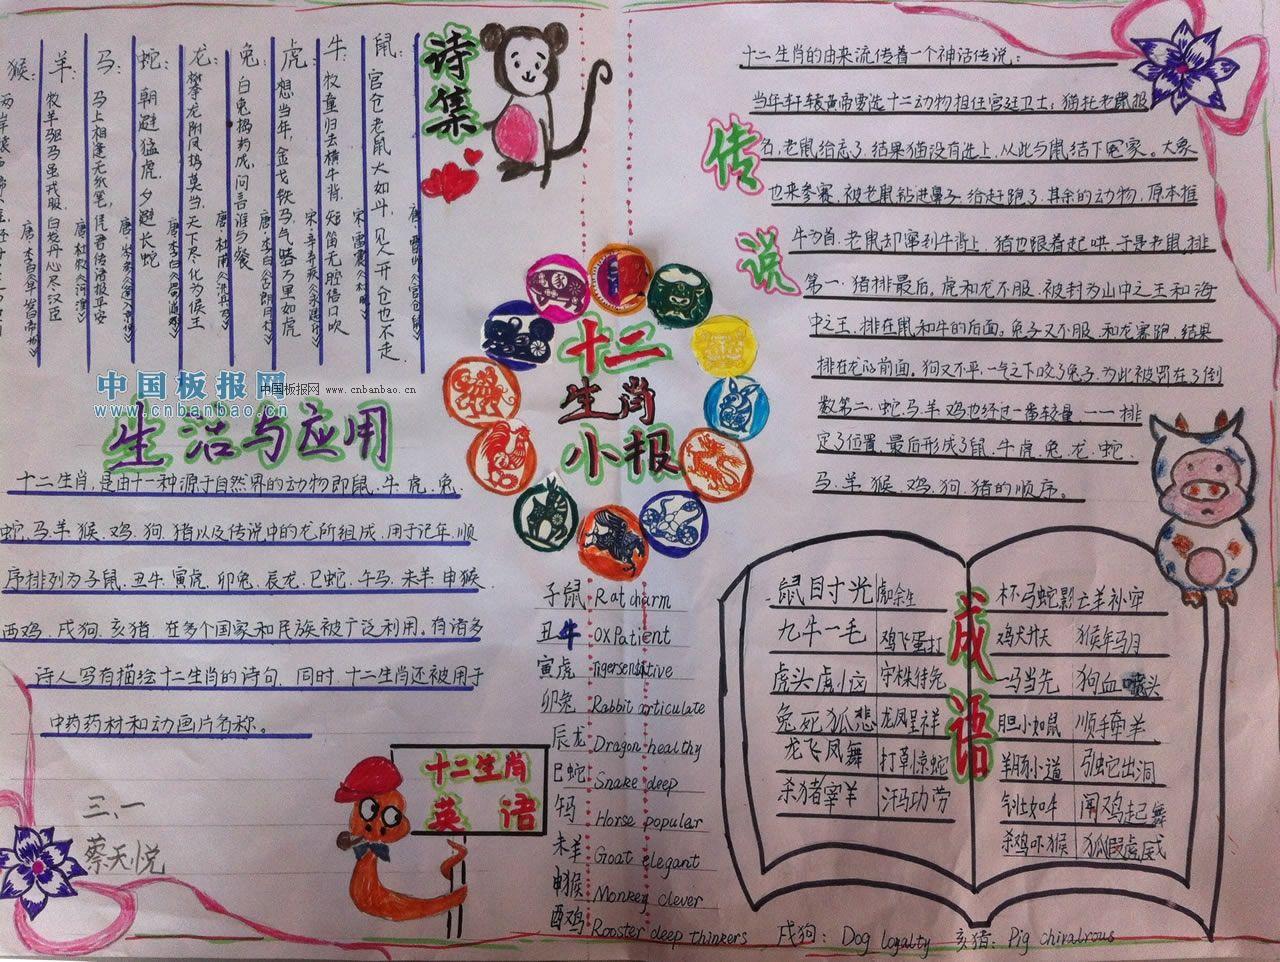 诗集
鼠：官仓老鼠大如斗，见人开仓也不走
牛：牧童归去横牛背，短笛无腔信口吹
虎：想当年，金戈铁马，气吞万里如虎
兔：白兔捣药成，问言谁与餐
龙：攀龙附凤势莫当，天下尽化为侯王
蛇：朝避猛虎，夕避长蛇
马：马上相逢无纸笔，凭君传语报平安
羊：牧羊驱马虽戎服，白发丹心尽汉臣
猴：
中国板报网
www.cnbanbao.cn
中国板报网 www.cnbanbao.cn
生活与应用
十二生肖，是由十一种源于自然界的动物即鼠、牛、虎、兔、
蛇、马、羊、猴、鸡、狗、猪以及传说中的龙所组成，用于记年，顺
序排列为子鼠、丑牛、寅虎、卯兔、辰龙、巳蛇、午马、未羊、申猴、
酉鸡、戌狗、亥猪。在多个国家和民族被广泛利用。有诸多
诗人写有描绘十二生肖的诗句，同时，十二生肖还被用于
中药药材和动画片名称。
三、一
蔡天悦
十二生肖
英语
十二
生肖
小报
子鼠 Rat charm
丑牛 OX Patient
寅虎 Tiger sensitive
卯兔 Rabbit articulate
辰龙 Dragon healthy
巳蛇 Snake deep
午马 Horse popular
未羊 Goat elegant
申猴 Monkey clever
酉鸡 Rooster deep thinkers
戌狗：Dog loyalty 亥猪：Pig chivalrous
传说
十二生肖的由来流传着一个神话传说：
当年轩辕黄帝要选十二动物担任宫廷卫士，猫托老鼠报
名，老鼠给忘了，结果猫没有选上，从此与鼠结下冤家。大象
也来参赛，被老鼠钻进鼻子，给赶跑了，其余的动物，原本推
牛为首，老鼠却窜到牛背上，猪也跟着起哄，于是老鼠排
第一，猪排最后。虎和龙不服，被封为山中之王和海
中之王，排在鼠和牛的后面。兔子又不服，和龙赛跑，结果
排在龙的前面，狗又不平，一气之下咬了兔子，为此被罚在了倒
数第二，蛇、马、羊、鸡也经过一番较量，一一排
定了位置，最后形成了鼠、牛、虎、兔、龙、蛇、
马、羊、猴、鸡、狗、猪的顺序。
成语
鼠目寸光
九牛一毛 鸡飞蛋打
虎头虎脑 守株待兔
兔死狐悲 龙凤呈祥
龙飞凤舞 打草惊蛇
杀猪宰羊 汗马功劳
杯弓蛇影 亡羊补牢
鸡犬升天 猴年马月
一马当先 狗血喷头
胆小如鼠 顺手牵羊
羊肠小道 引蛇出洞
气壮如牛 闻鸡起舞
杀鸡吓猴 狐假虎威